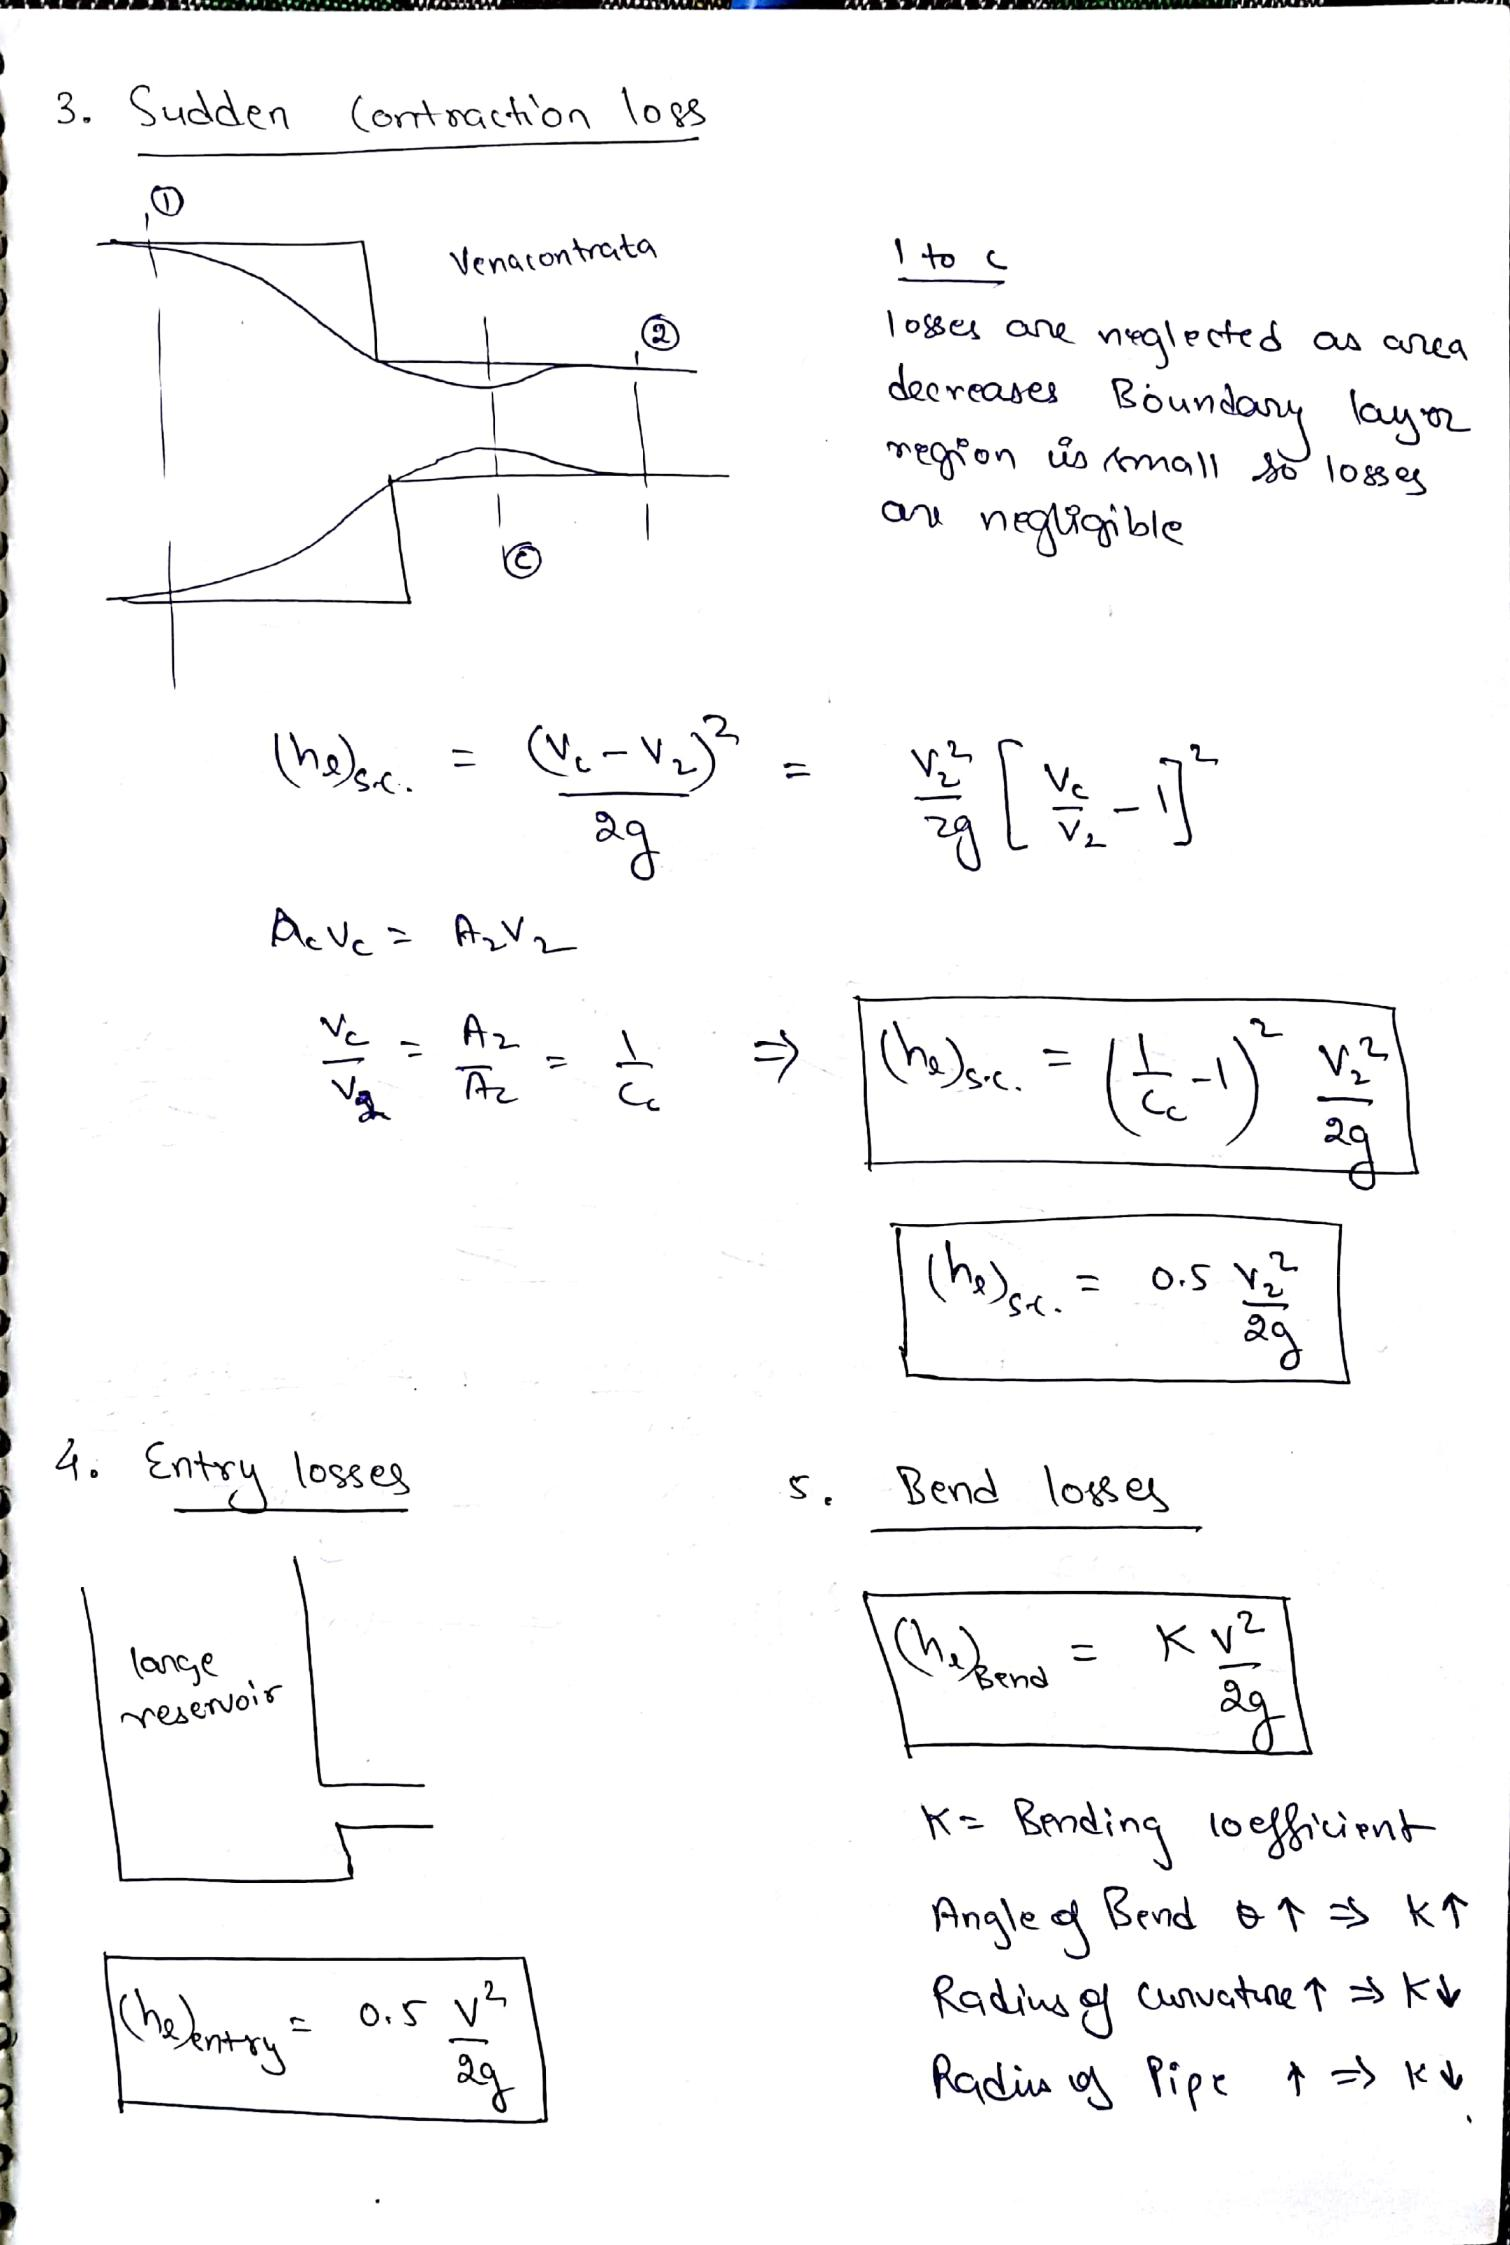 3. Sudden Contraction loss
①
Venacontrata
②
ⓒ
1 to c
losses are neglected as area
decreases Boundary layer
region is small so losses
are negligible
(hₑ)s.c. = (Vc - V₂)² / 2g = V₂² / 2g [Vc / V₂ - 1]²
AcVc = A₂V₂
Vc / V₂ = A₂ / Ac = 1 / Cc ⇒ (hₑ)s.c. = (1 / Cc - 1)² V₂² / 2g
(hₑ)s.c. = 0.5 V₂² / 2g
4. Entry losses
large
reservoir
(hₑ)entry = 0.5 V² / 2g
5. Bend losses
(hₑ)Bend = K V² / 2g
K = Bending coefficient
Angle of Bend θ ↑ ⇒ K↑
Radius of curvature ↑ ⇒ K↓
Radius of Pipe ↑ ⇒ K↓